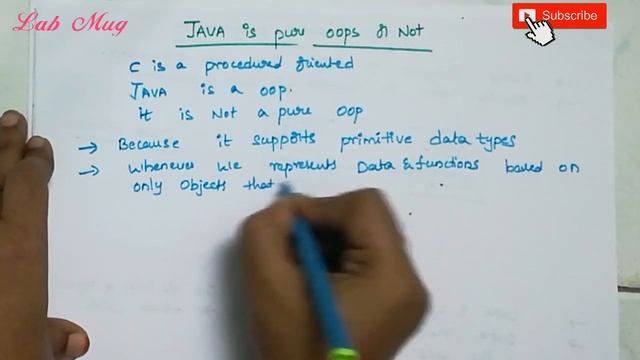 Lab Mug
Subscribe
JAVA is pure oops or Not
C is a procedured oriented
JAVA is a oop.
it is Not a pure oop
→ Because it supports primitive data types
→ Whenever we represents Data & functions based on
only objects that